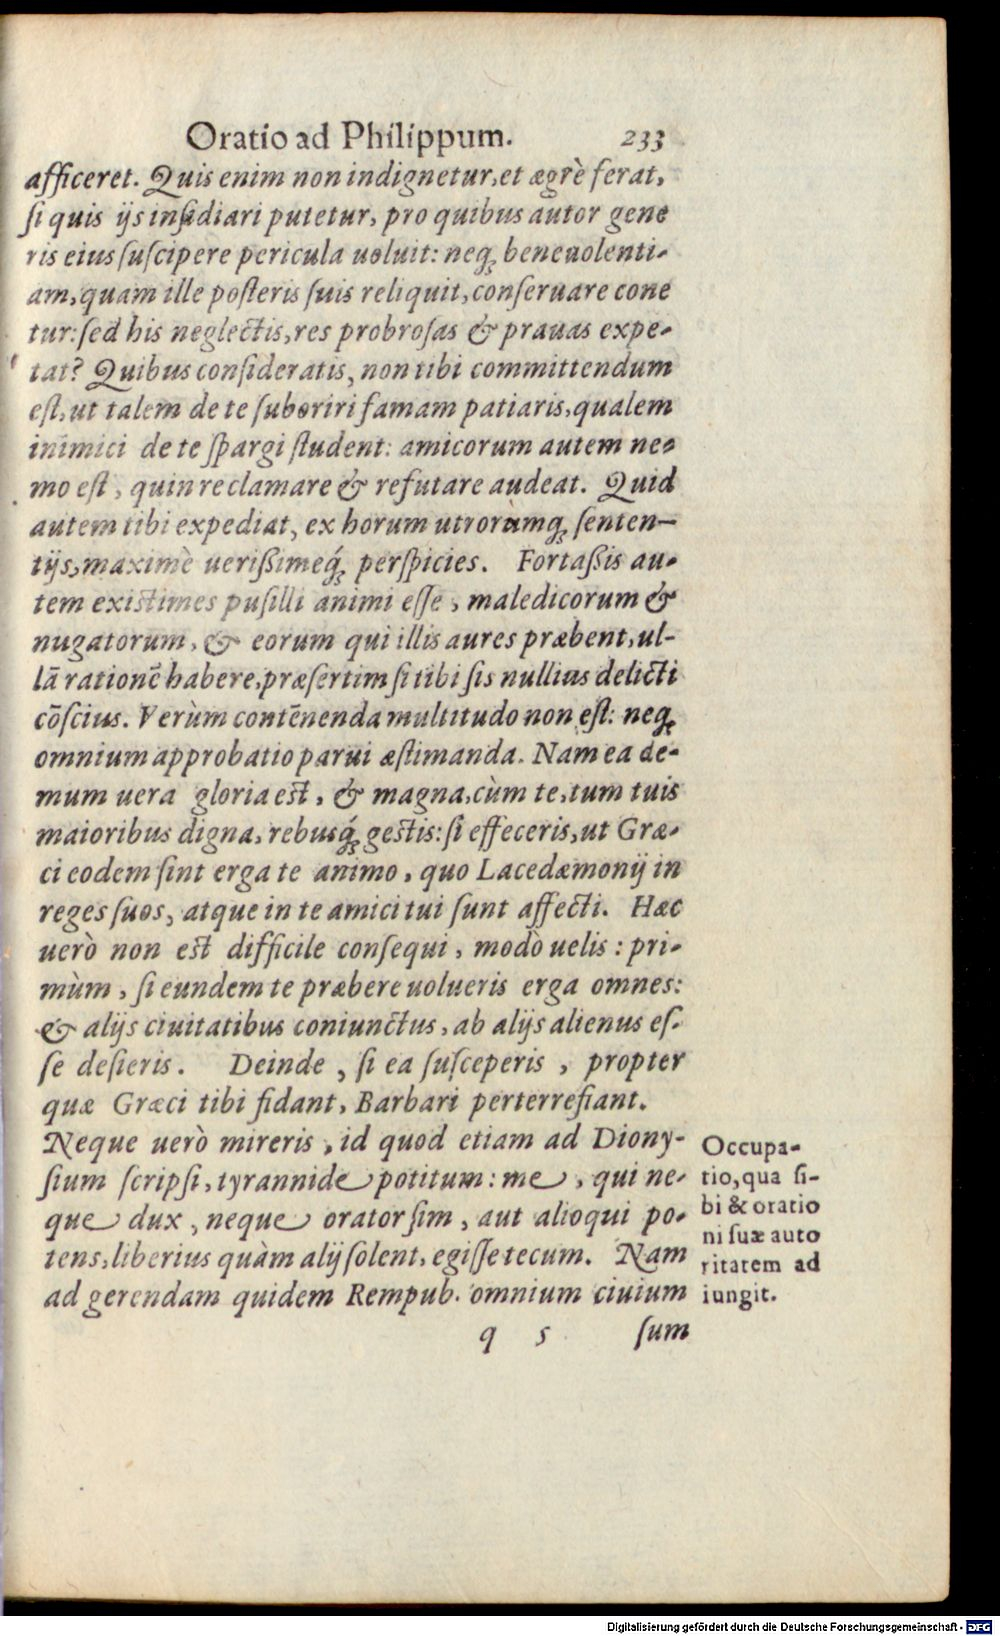 Oratio ad Philippum. 233
afficeret. Quis enim non indignetur, et ægrè ferat,
ſi quis ijs inſidiari putetur, pro quibus autor gene
ris eius ſuſcipere pericula uoluit: neqꝫ beneuolenti-
am, quam ille poſteris ſuis reliquit, conſeruare cone
tur: ſed his neglectis, res probroſas & prauas expe-
tat? Quibus conſideratis, non tibi committendum
eſt, ut talem de te ſuboriri famam patiaris, qualem
inimici de te ſpargi ſtudent: amicorum autem ne-
mo eſt, quin reclamare & refutare audeat. Quid
autem tibi expediat, ex horum utrorùmqꝫ ſenten-
tijs, maximè ueriſsimeq́ꝫ perſpicies. Fortaſsis au-
tem existimes puſilli animi eſſe, maledicorum &
nugatorum, & eorum qui illis aures præbent, ul-
lā rationē habere, præſertim ſi tibi ſis nullius delicti
cōſcius. Verùm contēnenda multitudo non eſt: neqꝫ
omnium approbatio parui æſtimanda. Nam ea de-
mum uera gloria est, & magna, cùm te, tum tuis
maioribus digna, rebusq́ꝫ gestis: ſi effeceris, ut Græ-
ci eodem ſint erga te animo, quo Lacedæmonij in
reges ſuos, atque in te amici tui ſunt affecti. Hæc
uerò non est difficile conſequi, modò uelis: pri-
mùm, ſi eundem te præbere uolueris erga omnes:
& alijs ciuitatibus coniunctus, ab alijs alienus eſ-
ſe deſieris. Deinde, ſi ea ſuſceperis, propter
quæ Græci tibi fidant, Barbari perterrefiant.
Neque uerò mireris, id quod etiam ad Diony-
ſium ſcripſi, tyrannide potitum: me, qui ne-
que dux, neque orator ſim, aut alioqui po-
tens, liberius quàm alij ſolent, egiſſe tecum. Nam
ad gerendam quidem Rempub. omnium ciuium
Occupa-
tio, qua ſi-
bi & oratio
ni ſuæ auto
ritatem ad
iungit.
q 5 ſum
Digitalisierung gefördert durch die Deutsche Forschungsgemeinschaft - DFG